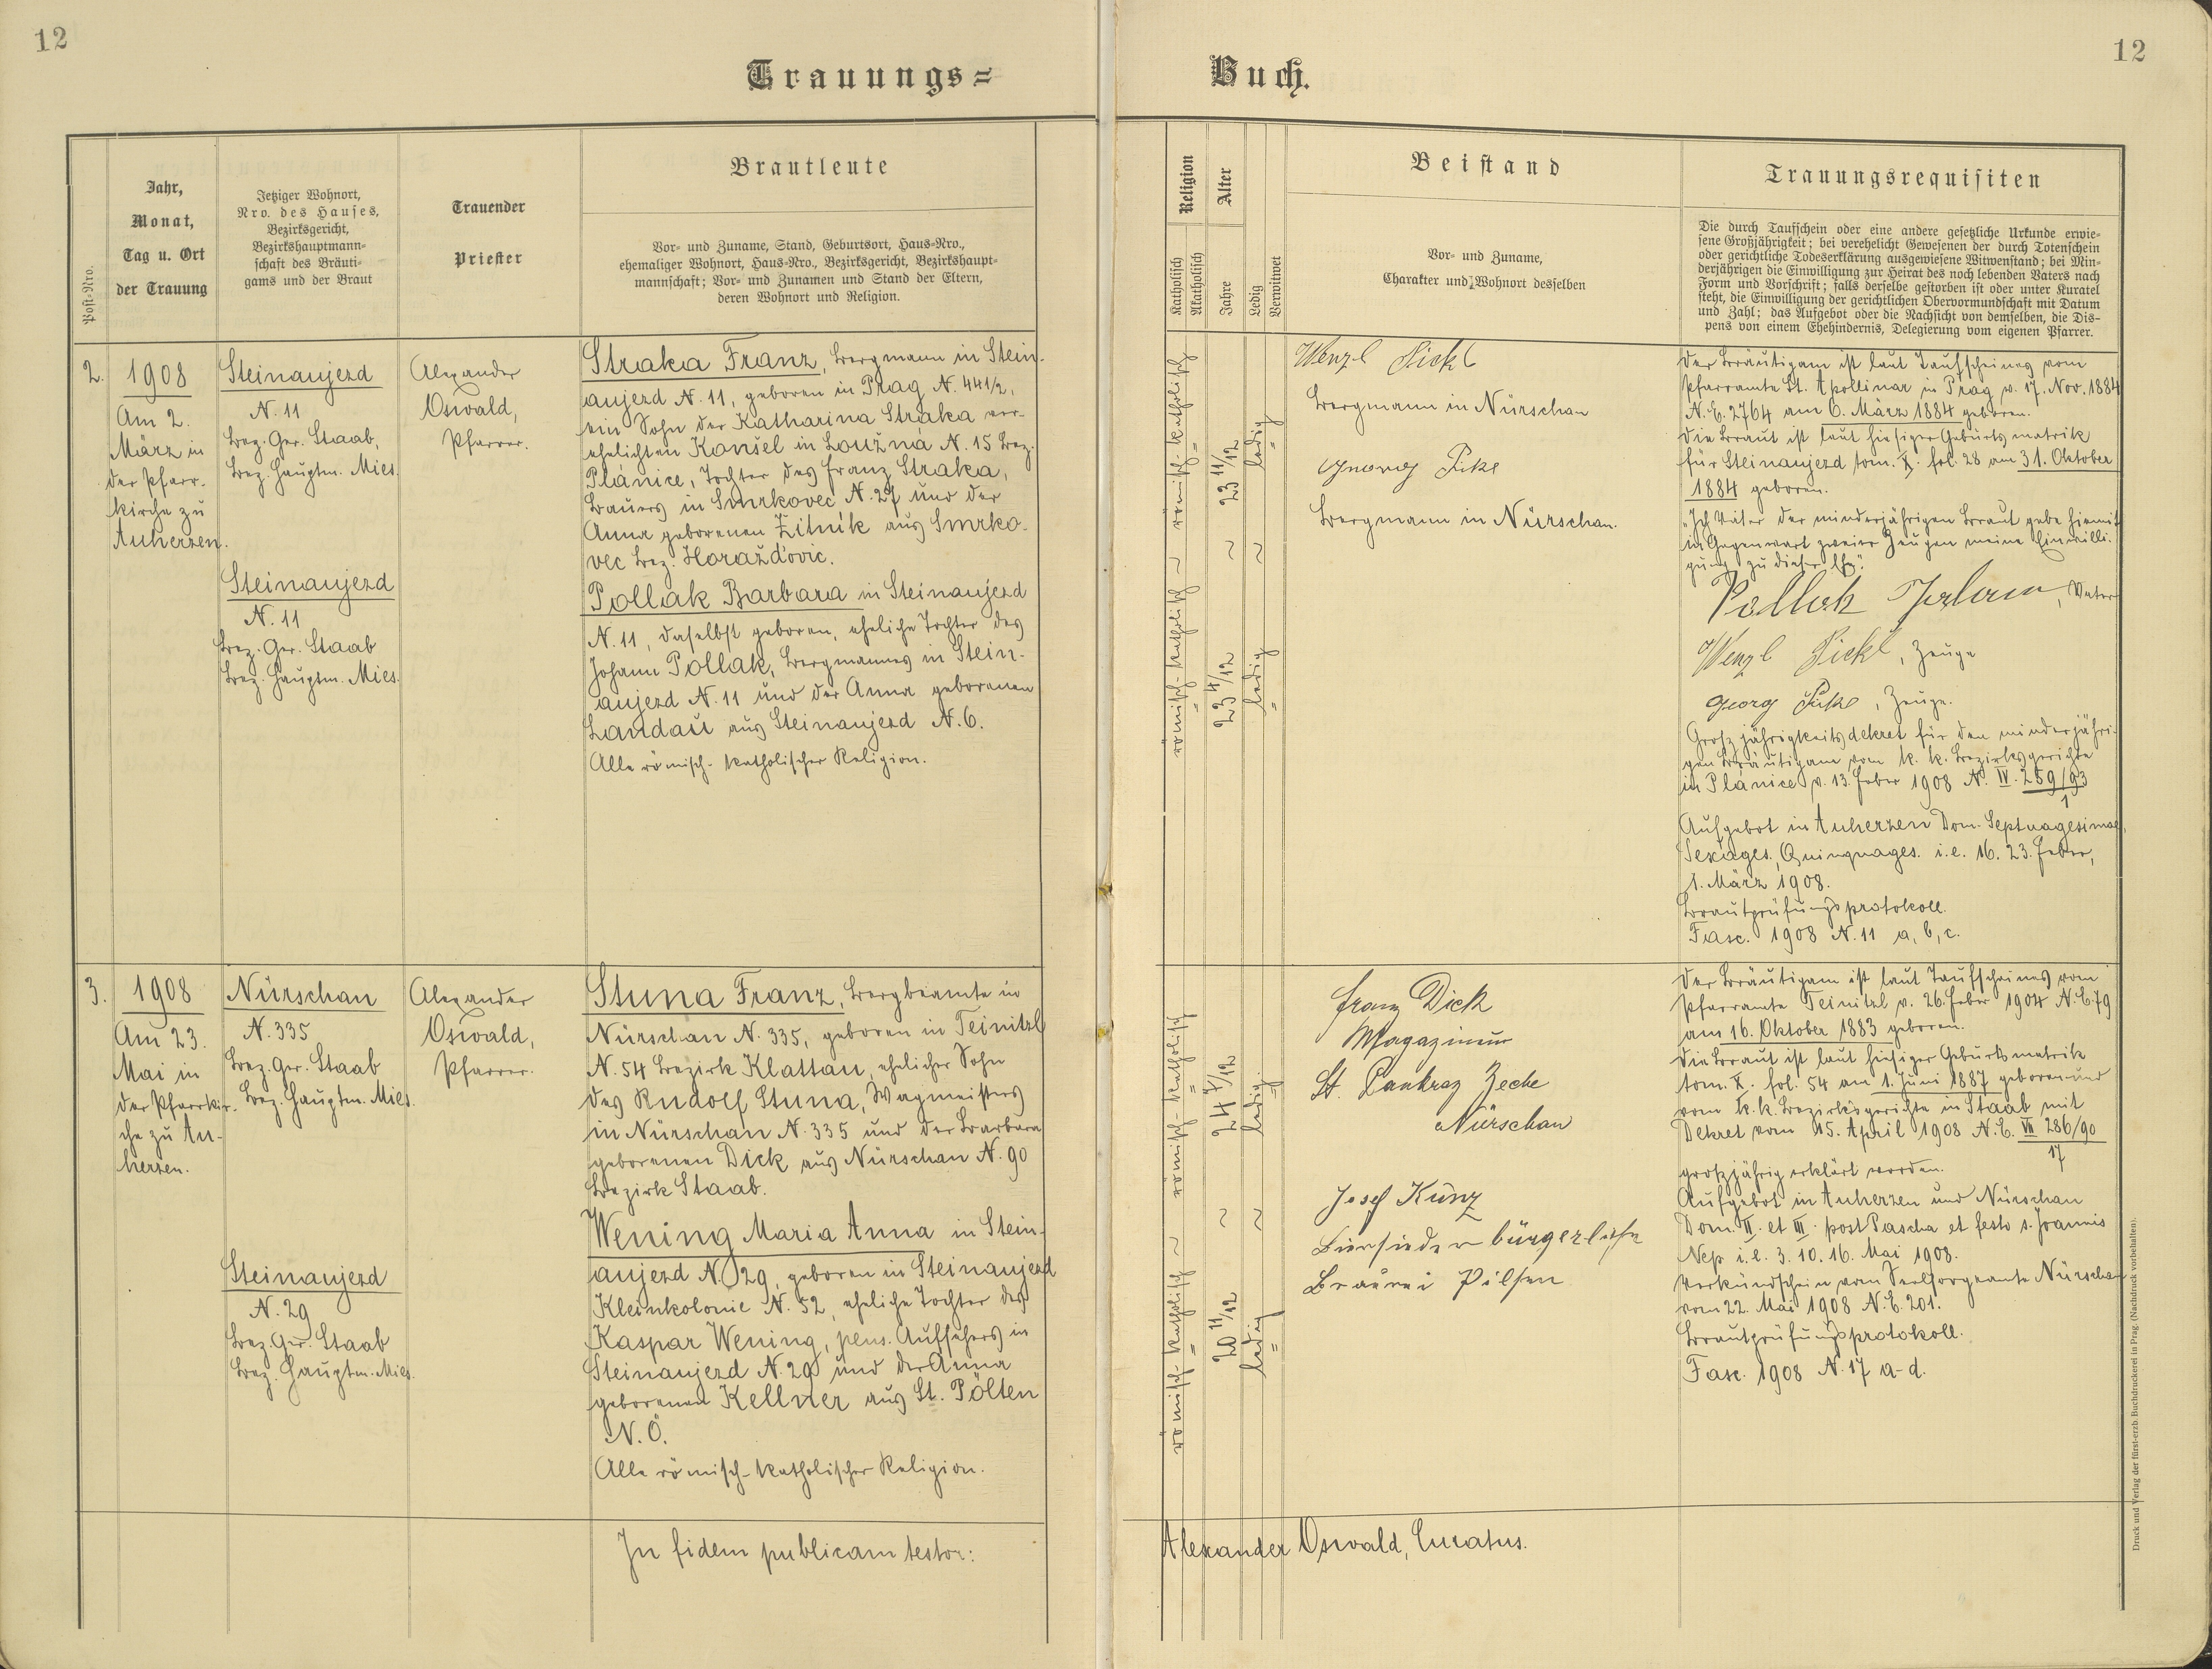 12
12
Trauungs=
Buch.
Post-Nro.
Jahr,
Monat,
Tag u. Ort
der Trauung
Jetziger Wohnort,
Nro. des Hauses,
Bezirksgericht,
Bezirkshauptmann-
schaft des Bräuti-
gams und der Braut
Trauender
Priester
Brautleute
Vor- und Zuname, Stand, Geburtsort, Haus-Nro.,
ehemaliger Wohnort, Haus-Nro., Bezirksgericht, Bezirkshaupt-
mannschaft; Vor- und Zunamen und Stand der Eltern,
deren Wohnort und Religion.
Religion
Katholisch
Akatholisch
Alter
Jahre
Ledig
Verwitwet
Beistand
Vor- und Zuname,
Charakter und Wohnort desselben
Trauungsrequisiten
Die durch Taufschein oder eine andere gesetzliche Urkunde erwie-
sene Großjährigkeit; bei verehelicht Gewesenen der durch Totenschein
oder gerichtliche Todeserklärung ausgewiesene Witwenstand; bei Min-
derjährigen die Einwilligung zur Heirat des noch lebenden Vaters nach
Form und Vorschrift; falls derselbe gestorben ist oder unter Kuratel
steht, die Einwilligung der gerichtlichen Obervormundschaft mit Datum
und Zahl; das Aufgebot oder die Nachsicht von demselben, die Dis-
pens von einem Ehehindernis, Delegierung vom eigenen Pfarrer.
2.
1908
Am 2.
März in
der Pfarr-
kirche zu
Auherzen.
Steinaujezd
N. 11
Bez. Ger. Staab,
Bez. Hauptm. Mies.
Steinaujezd
N. 11
Bez. Ger. Staab
Bez. Hauptm. Mies.
Alexander
Oswald,
Pfarrer.
Straka Franz, Bergmann in Stein-
aujezd N. 11, geboren in Prag N. 441/2,
ein Sohn der Katharina Straka ver-
ehelichten Konšel in Loužna N. 15 Bez.
Plánice, Tochter des Franz Straka,
Bauers in Smrkovec N. 27 und der
Anna geborenen Žitník aus Smrko-
vec Bez. Horažďovic.
Pollak Barbara in Steinaujezd
N. 11, daselbst geboren, eheliche Tochter des
Johann Pollak, Bergmannes in Stein-
aujezd N. 11 und der Anna geborenen
Landau aus Steinaujezd N. 6.
Alle römisch-katholischer Religion.
römisch-katholisch
23 11/12
ledig
römisch-katholisch
23 4/12
ledig
Wenzl Pickl
Bergmann in Nürschan
Georg
Bergmann in Nürschan.
Der Bräutigam ist laut Taufscheines vom
Pfarramte St. Apollinar in Prag v. 17. Nov. 1884
N. E. 2764 am 6. März 1884 geboren.
Die Braut ist laut hiesiger Geburtsmatrik
für Steinaujezd tom. X. fol. 28 am 31. Oktober
1884 geboren.
"Ich Vater der minderjährigen Braut gebe hiemit
in Gegenwart zweier Zeugen meine Einwilli-
gung zu dieser Ehe."
Pollak Johann, Vater
Wenzl Pickl, Zeuge
Georg, Zeuge.
Großjährigkeitsdekret für den minderjähri-
gen Bräutigam vom k. k. Bezirksgerichte
in Plánice v. 13. Feber 1908 N. IV. 259/93
1
Aufgebot in Auherzen Dom. Septuagesimae,
Sexages., Quinquages. i. e. 16. 23. Feber,
1. März 1908.
Brautprüfungsprotokoll.
Fasc. 1908 N. 11 a, b, c.
3.
1908
Am 23.
Mai in
der Pfarrkir-
che zu Au-
herzen.
Nürschan
N. 335
Bez. Ger. Staab
Bez. Hauptm. Mies.
Steinaujezd
N. 29
Bez. Ger. Staab
Bez. Hauptm. Mies.
Alexander
Oswald,
Pfarrer.
Stuna Franz, Bergbeamte in
Nürschan N. 335, geboren in Teinitzl
N. 54 Bezirk Klattau, ehelicher Sohn
des Rudolf Stuna, Wagmeisters
in Nürschan N. 335 und der Barbara
geborenen Dick aus Nürschan N. 90
Bezirk Staab.
Wening Maria Anna in Stein-
aujezd N. 29, geboren in Steinaujezd
Kleinkolonie N. 52, eheliche Tochter des
Kaspar Wening, pens. Aufsehers in
Steinaujezd N. 29 und der Anna
geborenen Kellner aus St. Pölten
N. Ö.
Alle römisch-katholischer Religion.
römisch-katholisch
24 7/12
ledig.
römisch-katholisch
20 11/12
ledig
Franz Dick
Magazineur
St. Pankraz Zeche
Nürschan
Josef Künz
Biersieder bürgerliche
Brauerei Pilsen
Der Bräutigam ist laut Taufscheines vom
Pfarramte Teinitzl v. 26. Feber 1904 N. E. 79
am 16. Oktober 1883 geboren.
Die Braut ist laut hiesiger Geburtsmatrik
tom. X. fol. 54 am 1. Juni 1887 geboren und
vom k. k. Bezirksgerichte in Staab mit
Dekret vom 15. April 1908 N. E. VII 286/90
17
großjährig erklärt worden.
Aufgebot in Auherzen und Nürschan
Dom. II. et III. post Pascha et festo s. Joannis
Nep i. e. 3. 10. 16. Mai 1908.
Verkündschein vom Seelsorgeamte Nürschan
vom 22. Mai 1908 N. E. 201.
Brautprüfungsprotokoll.
Fasc. 1908 N. 17 a-d.
In fidem publicam testor:
Alexander Oswald, Curatus.
Druck und Verlag der fürst-erzb. Buchdruckerei in Prag. (Nachdruck vorbehalten).